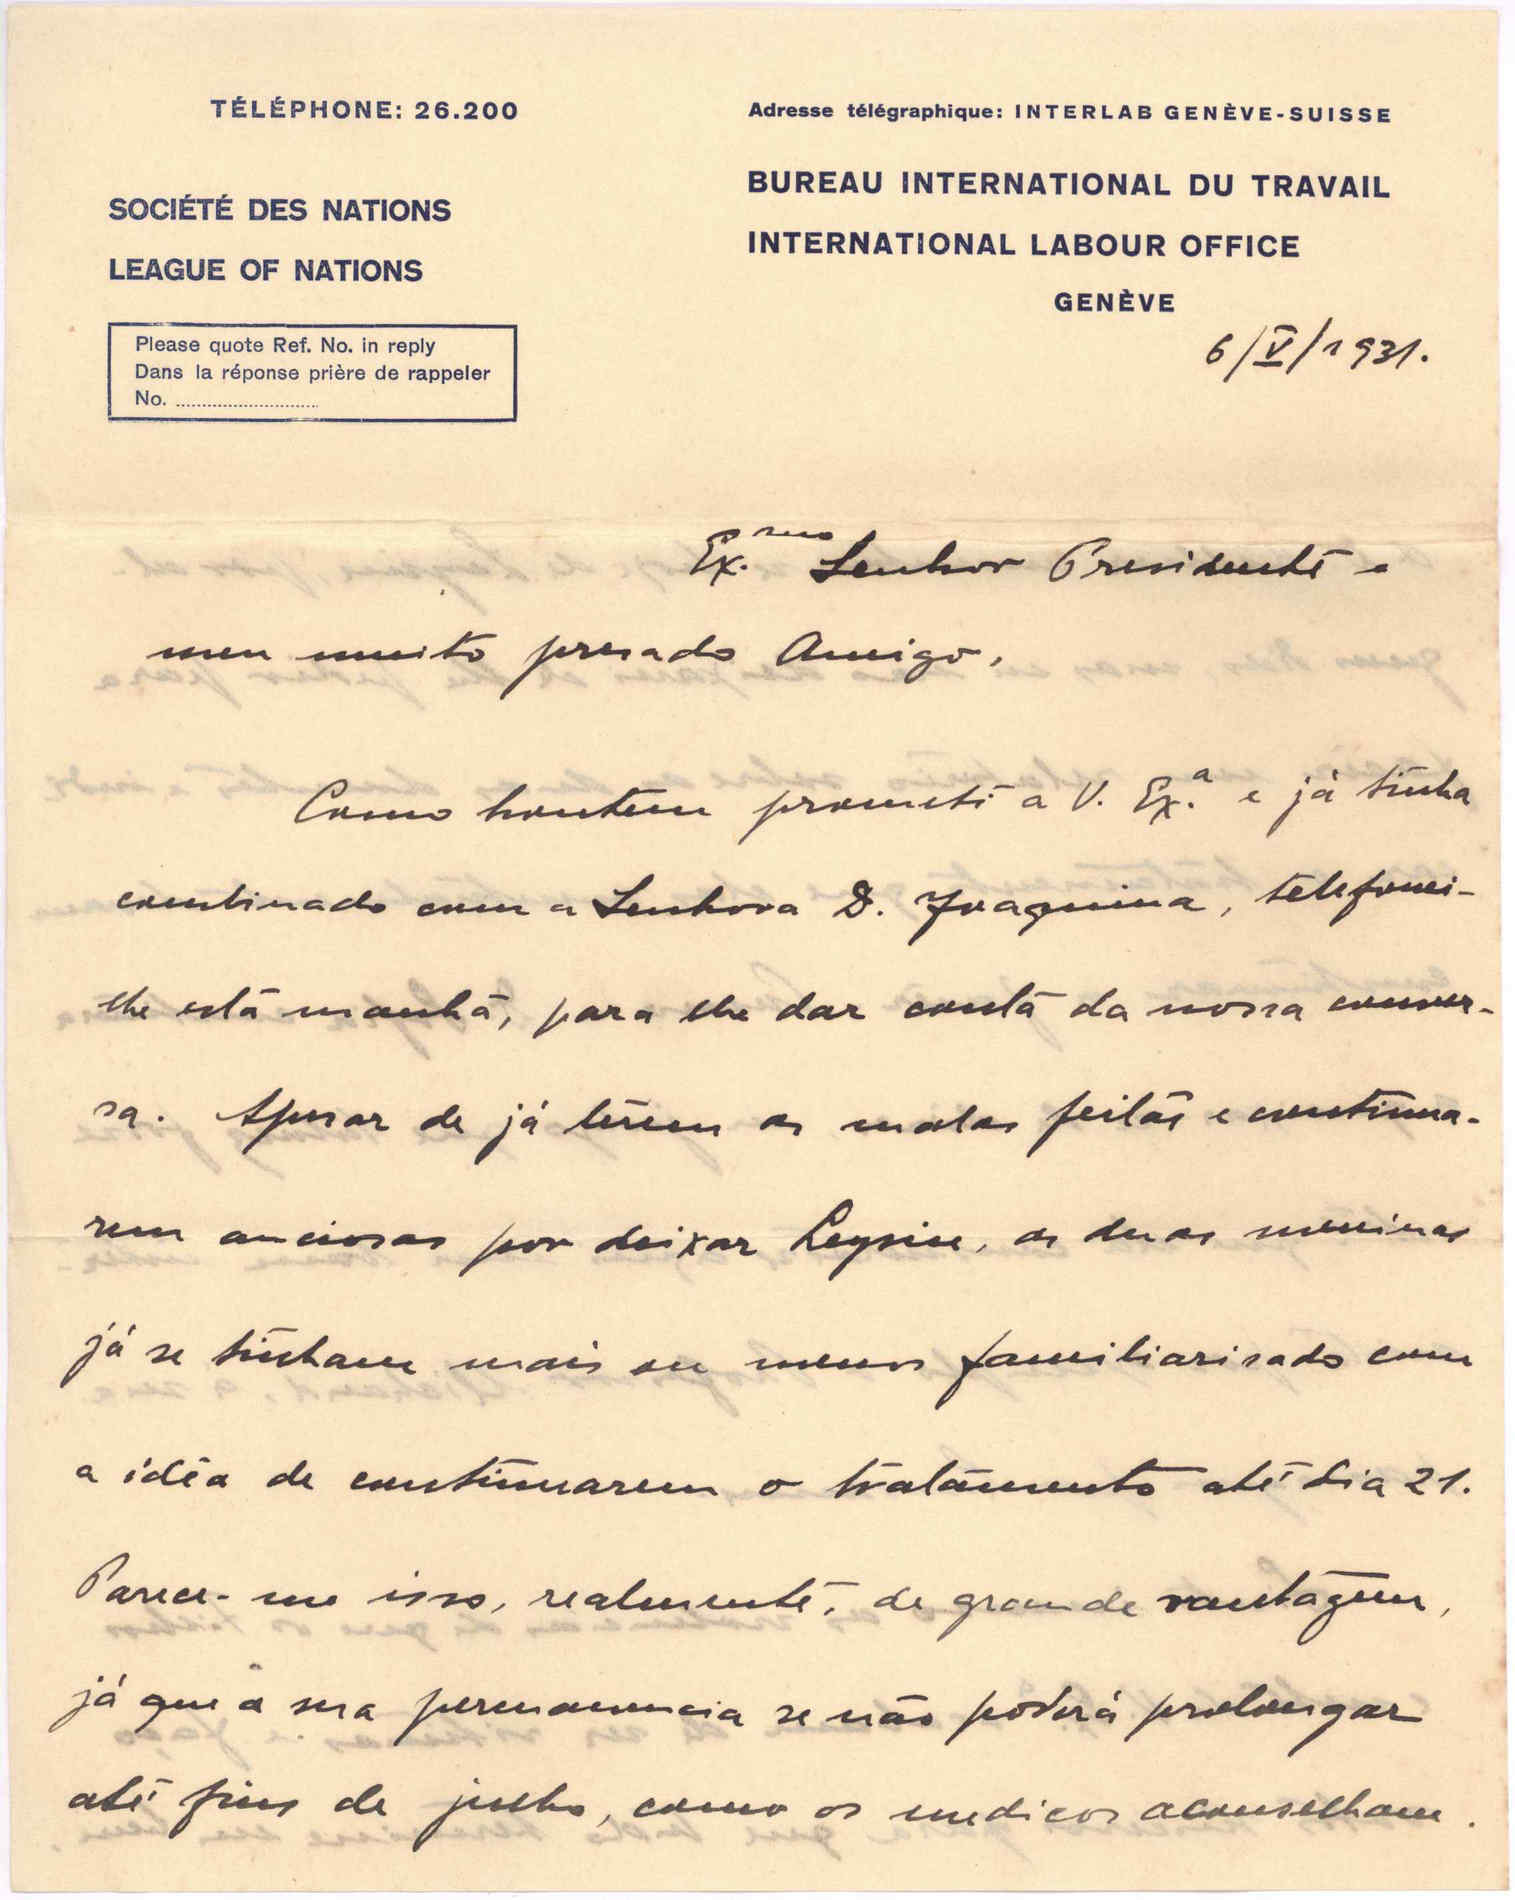 TÉLÉPHONE: 26.200
Adresse télégraphique: INTERLAB GENÈVE-SUISSE
SOCIÉTÉ DES NATIONS
LEAGUE OF NATIONS
BUREAU INTERNATIONAL DU TRAVAIL
INTERNATIONAL LABOUR OFFICE
GENÈVE
Please quote Ref. No. in reply
Dans la réponse prière de rappeler
No. ..........................
6/V/1931.
Ex.mo Senhor Presidente e
meu muito presado Amigo,
Como hontem prometi a V. Ex.a e já tinha
combinado com a Senhora D. Joaquina, telefonei-
lhe esta manhã, para lhe dar conta da nossa conver-
sa. Apesar de já terem as malas feitas e continua-
rem anciosas por deixar Leysin, as duas meninas
já se tinham mais ou menos familiarisado com
a idéa de continuarem o tratamento até dia 21.
Parece-me isso, realmente, de grande vantagem,
já que a sua permanencia se não poderá prolongar
até fins de julho, como os medicos aconselham.